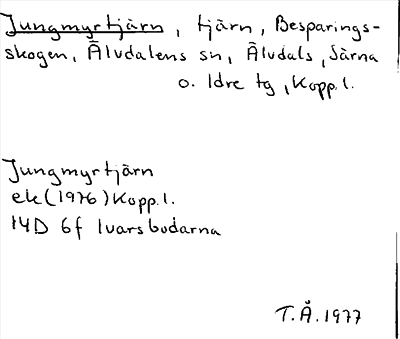 Jungmyrtjärn, tjärn, Besparings-
skogen, Älvdalens sn, Älvdals, Särna
o. Idre tg, Kopp. l.
Jungmyrtjärn
ek (1976) Kopp. l.
14D 6f Ivarsbodarna
T.Å. 1977